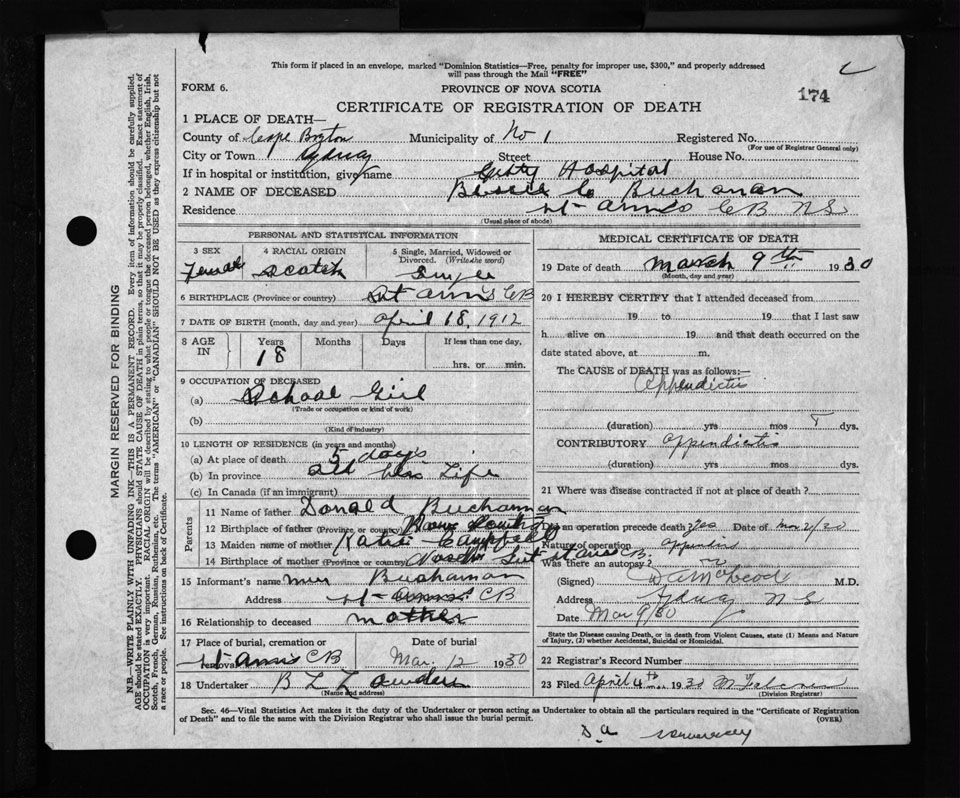 This form if placed in an envelope, marked "Dominion Statistics—Free, penalty for improper use, $300," and properly addressed
will pass through the Mail "FREE"
FORM 6.
PROVINCE OF NOVA SCOTIA
174
CERTIFICATE OF REGISTRATION OF DEATH
1 PLACE OF DEATH—
County of Cape Breton Municipality of No 1 Registered No.
(For use of Registrar General only)
City or Town Sydney Street House No.
If in hospital or institution, give name City Hospital
2 NAME OF DECEASED Bessie C Buchanan
Residence St Anns CB NS
(Usual place of abode)
PERSONAL AND STATISTICAL INFORMATION
3 SEX 4 RACIAL ORIGIN 5 Single, Married, Widowed or Divorced. (Write the word)
Female Scotch Single
6 BIRTHPLACE (Province or country) St Ann's CB
7 DATE OF BIRTH (month, day and year) April 18, 1912
8 AGE IN Years Months Days If less than one day,
18 hrs. or min.
9 OCCUPATION OF DECEASED
(a) School Girl
(Trade or occupation or kind of work)
(b)
(Kind of industry)
10 LENGTH OF RESIDENCE (in years and months)
(a) At place of death 5 days
(b) In province All her Life
(c) In Canada (if an immigrant)
Parents
11 Name of father Donald Buchanan
12 Birthplace of father (Province or country)
13 Maiden name of mother Katie Campbell
14 Birthplace of mother (Province or country)
15 Informant's name Mrs Buchanan
Address St Anns CB
16 Relationship to deceased mother
17 Place of burial, cremation or removal Date of burial
St Anns CB Mar. 12 1930
18 Undertaker B L
(Name and address)
MEDICAL CERTIFICATE OF DEATH
19 Date of death March 9th 1930
(Month, day and year)
20 I HEREBY CERTIFY that I attended deceased from
19 to 19 that I last saw
h alive on 19 and that death occurred on the
date stated above, at m.
The CAUSE of DEATH was as follows:—
Appendictis
(duration) yrs mos dys.
CONTRIBUTORY Appendictis
(duration) yrs mos dys.
21 Where was disease contracted if not at place of death?
Did an operation precede death? Yes Date of Mar 2/30
Nature of operation
Was there an autopsy? no
(Signed) D A McLeod M.D.
Address Sydney N S
Date Mar 9/30
State the Disease causing Death, or in death from Violent Causes, state (1) Means and Nature of Injury, (2) whether Accidental, Suicidal or Homicidal.
22 Registrar's Record Number
23 Filed April 4th 1930
(Division Registrar)
Sec. 46—Vital Statistics Act makes it the duty of the Undertaker or person acting as Undertaker to obtain all the particulars required in the "Certificate of Registration
of Death" and to file the same with the Division Registrar who shall issue the burial permit.
(OVER)
MARGIN RESERVED FOR BINDING
N.B.—WRITE PLAINLY WITH UNFADING INK—THIS IS A PERMANENT RECORD. Every item of information should be carefully supplied.
AGE should be stated EXACTLY. PHYSICIANS should STATE CAUSE OF DEATH in plain terms, so that it may be properly classified. Exact statement of
OCCUPATION is very important. RACIAL ORIGIN will be described by stating to what people or tongue the deceased person belonged, whether English, Irish,
Scotch, French, German, Russian, Ruthenian, etc. The terms "AMERICAN" or "CANADIAN" SHOULD NOT BE USED as they express citizenship but not
a race or people. See instructions on back of Certificate.